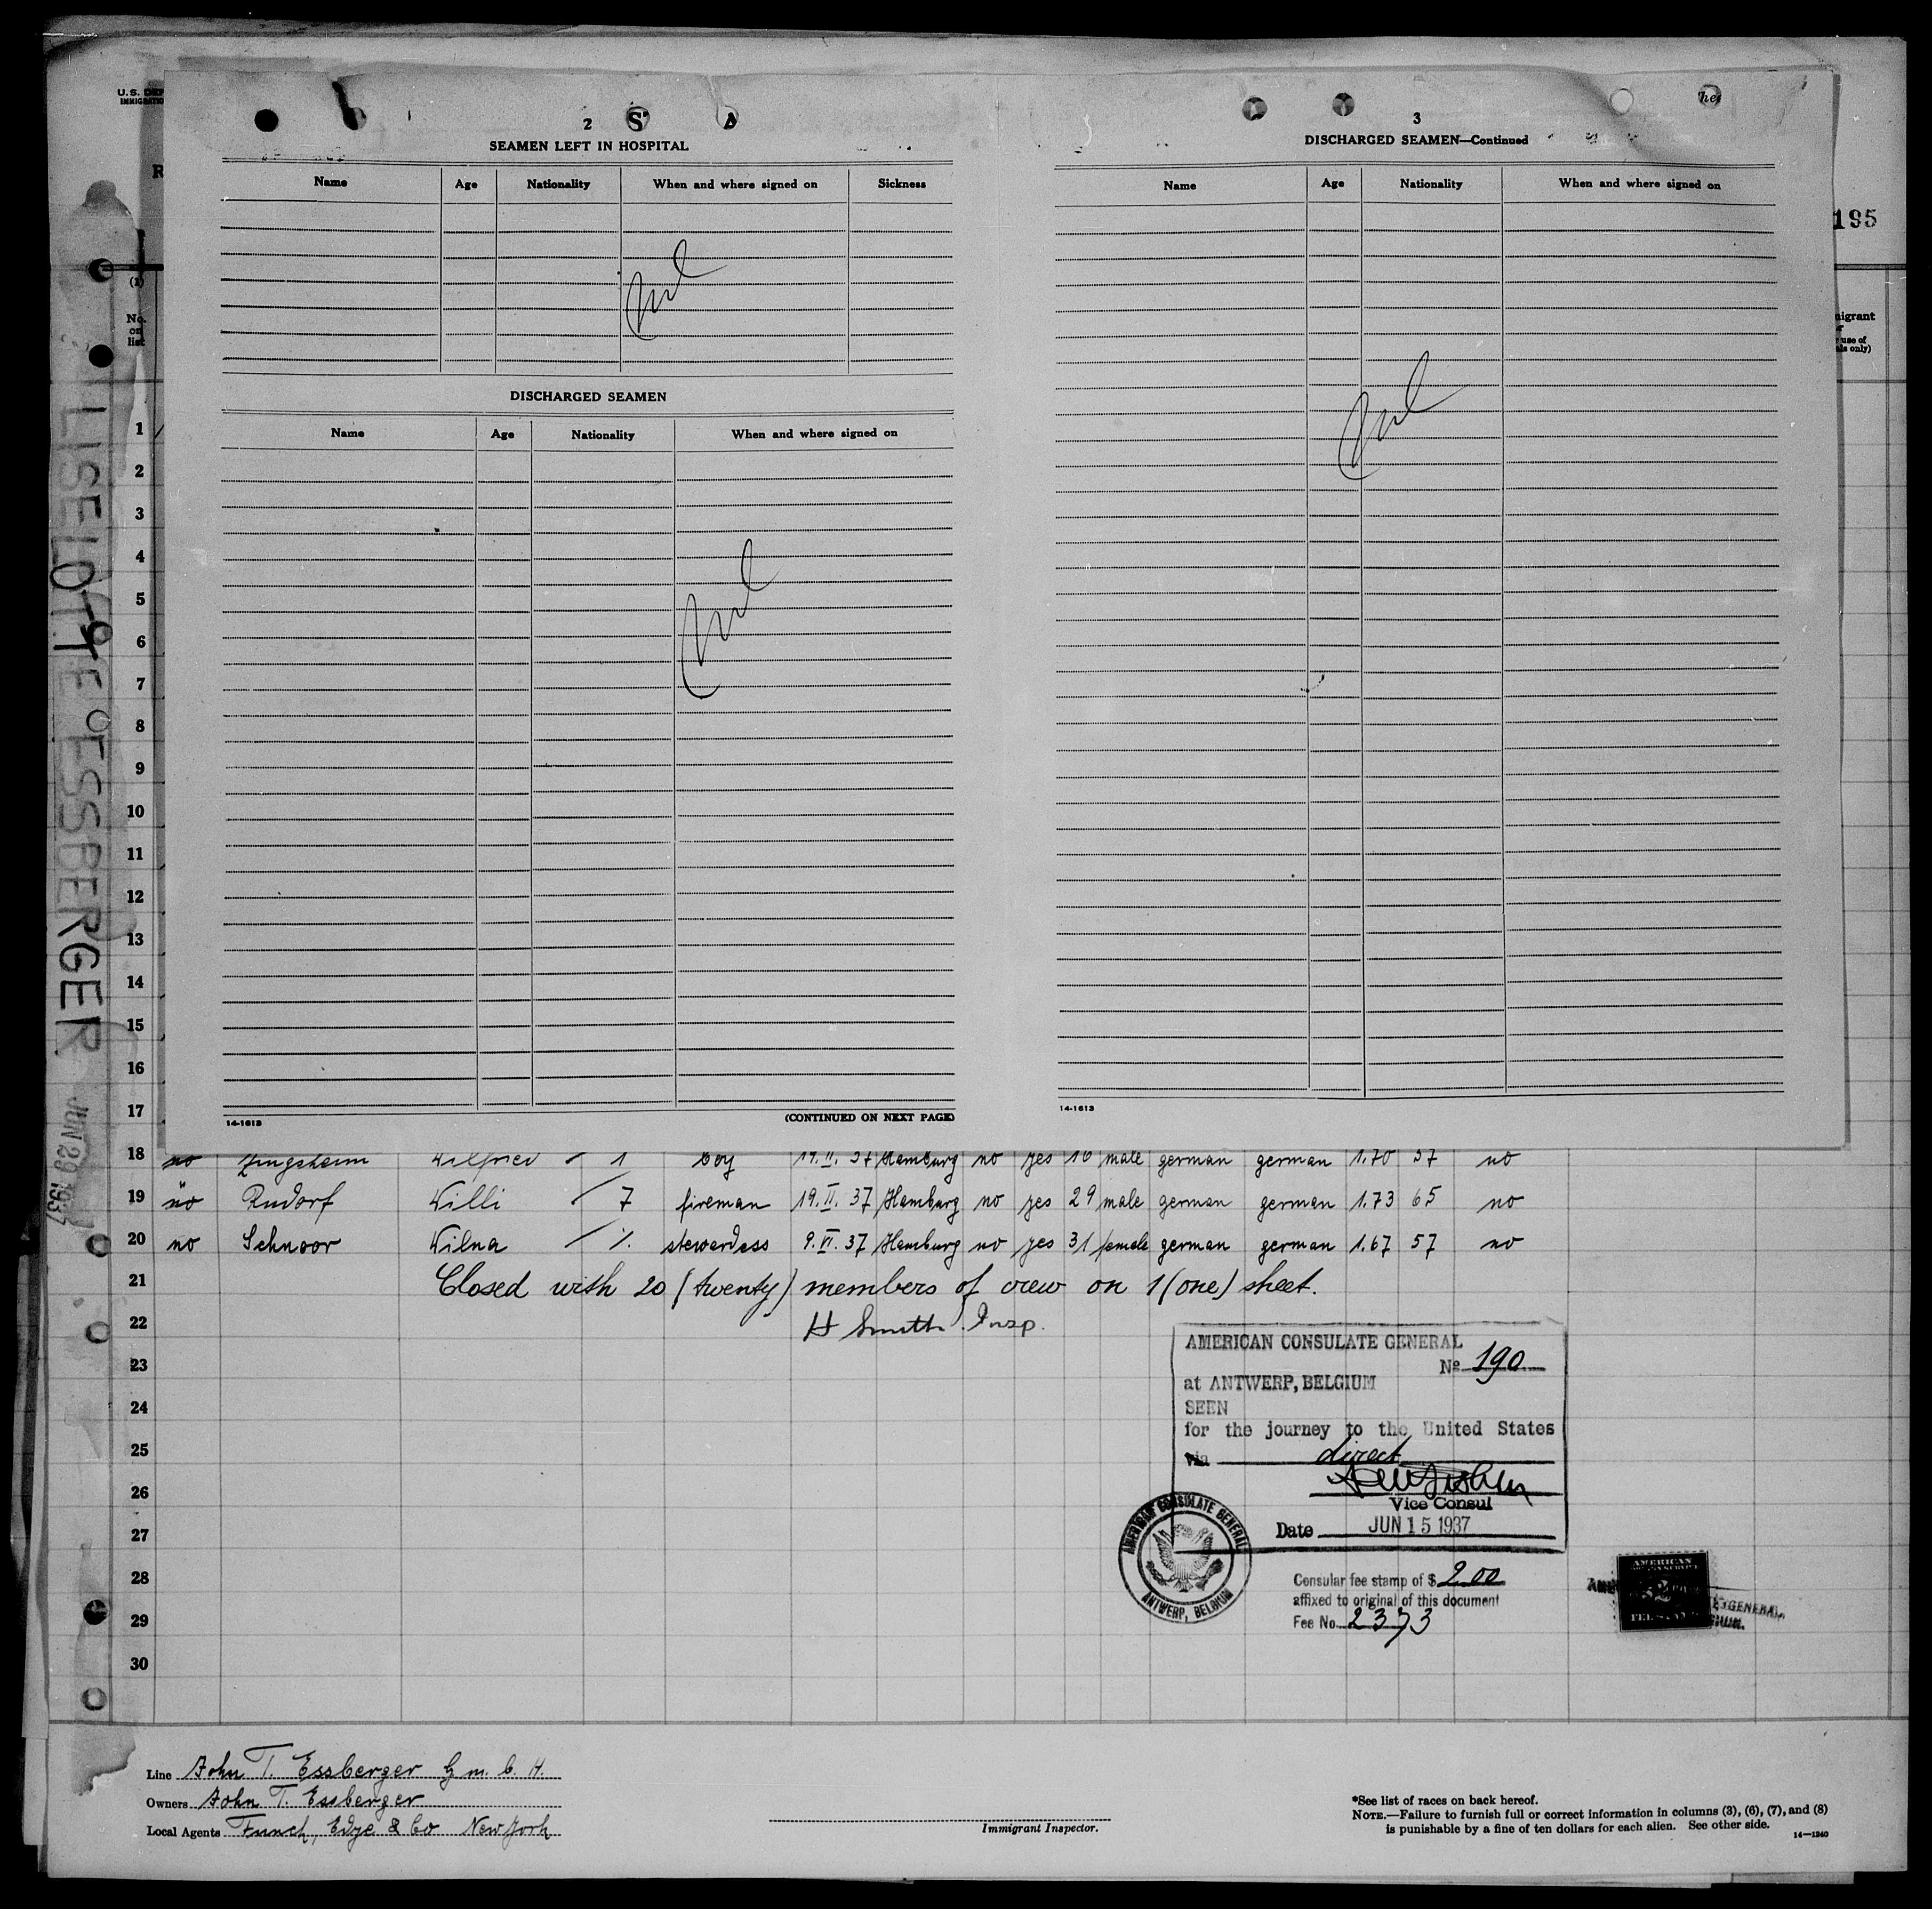 U.S. DEP
IMMIGRATIO
R
195
2
S A
SEAMEN LEFT IN HOSPITAL
Name Age Nationality When and where signed on Sickness
nil
DISCHARGED SEAMEN
Name Age Nationality When and where signed on
nil
14-1613
(CONTINUED ON NEXT PAGE)
3
DISCHARGED SEAMEN—Continued
Name Age Nationality When and where signed on
nil
14-1613
LISELOTTE ESSBERGER
JUN 29 1937
(1)
No.
on
list
migrant
r use of
als only)
1
2
3
4
5
6
7
8
9
10
11
12
13
14
15
16
17
18 no Zingsheim Wilfried 1 boy 19. II. 37 Hamburg no yes 16 male german german 1.70 57 no
19 no Rudorf Willi 7 fireman 19. II. 37 Hamburg no yes 29 male german german 1.73 65 no
20 no Schnoor Wilna /. stewardess 9. VI. 37 Hamburg no yes 31 female german german 1.67 57 no
21 Closed with 20 (twenty) members of crew on 1 (one) sheet.
22 H Smith Insp.
23
24
25
26
27
28
29
30
AMERICAN CONSULATE GENERAL
No 190
at ANTWERP, BELGIUM
SEEN
for the journey to the United States
via direct
Vice Consul
Date JUN 15 1937
AMERICAN CONSULATE GENERAL
ANTWERP, BELGIUM
Consular fee stamp of $ 2.00
affixed to original of this document
Fee No. 2373
AMERICAN
Line John T. Essberger G.m.b.H.
Owners John T. Essberger
Local Agents Funch, Edye & Co New York
Immigrant Inspector.
*See list of races on back hereof.
NOTE.—Failure to furnish full or correct information in columns (3), (6), (7), and (8)
is punishable by a fine of ten dollars for each alien. See other side.
14—1240